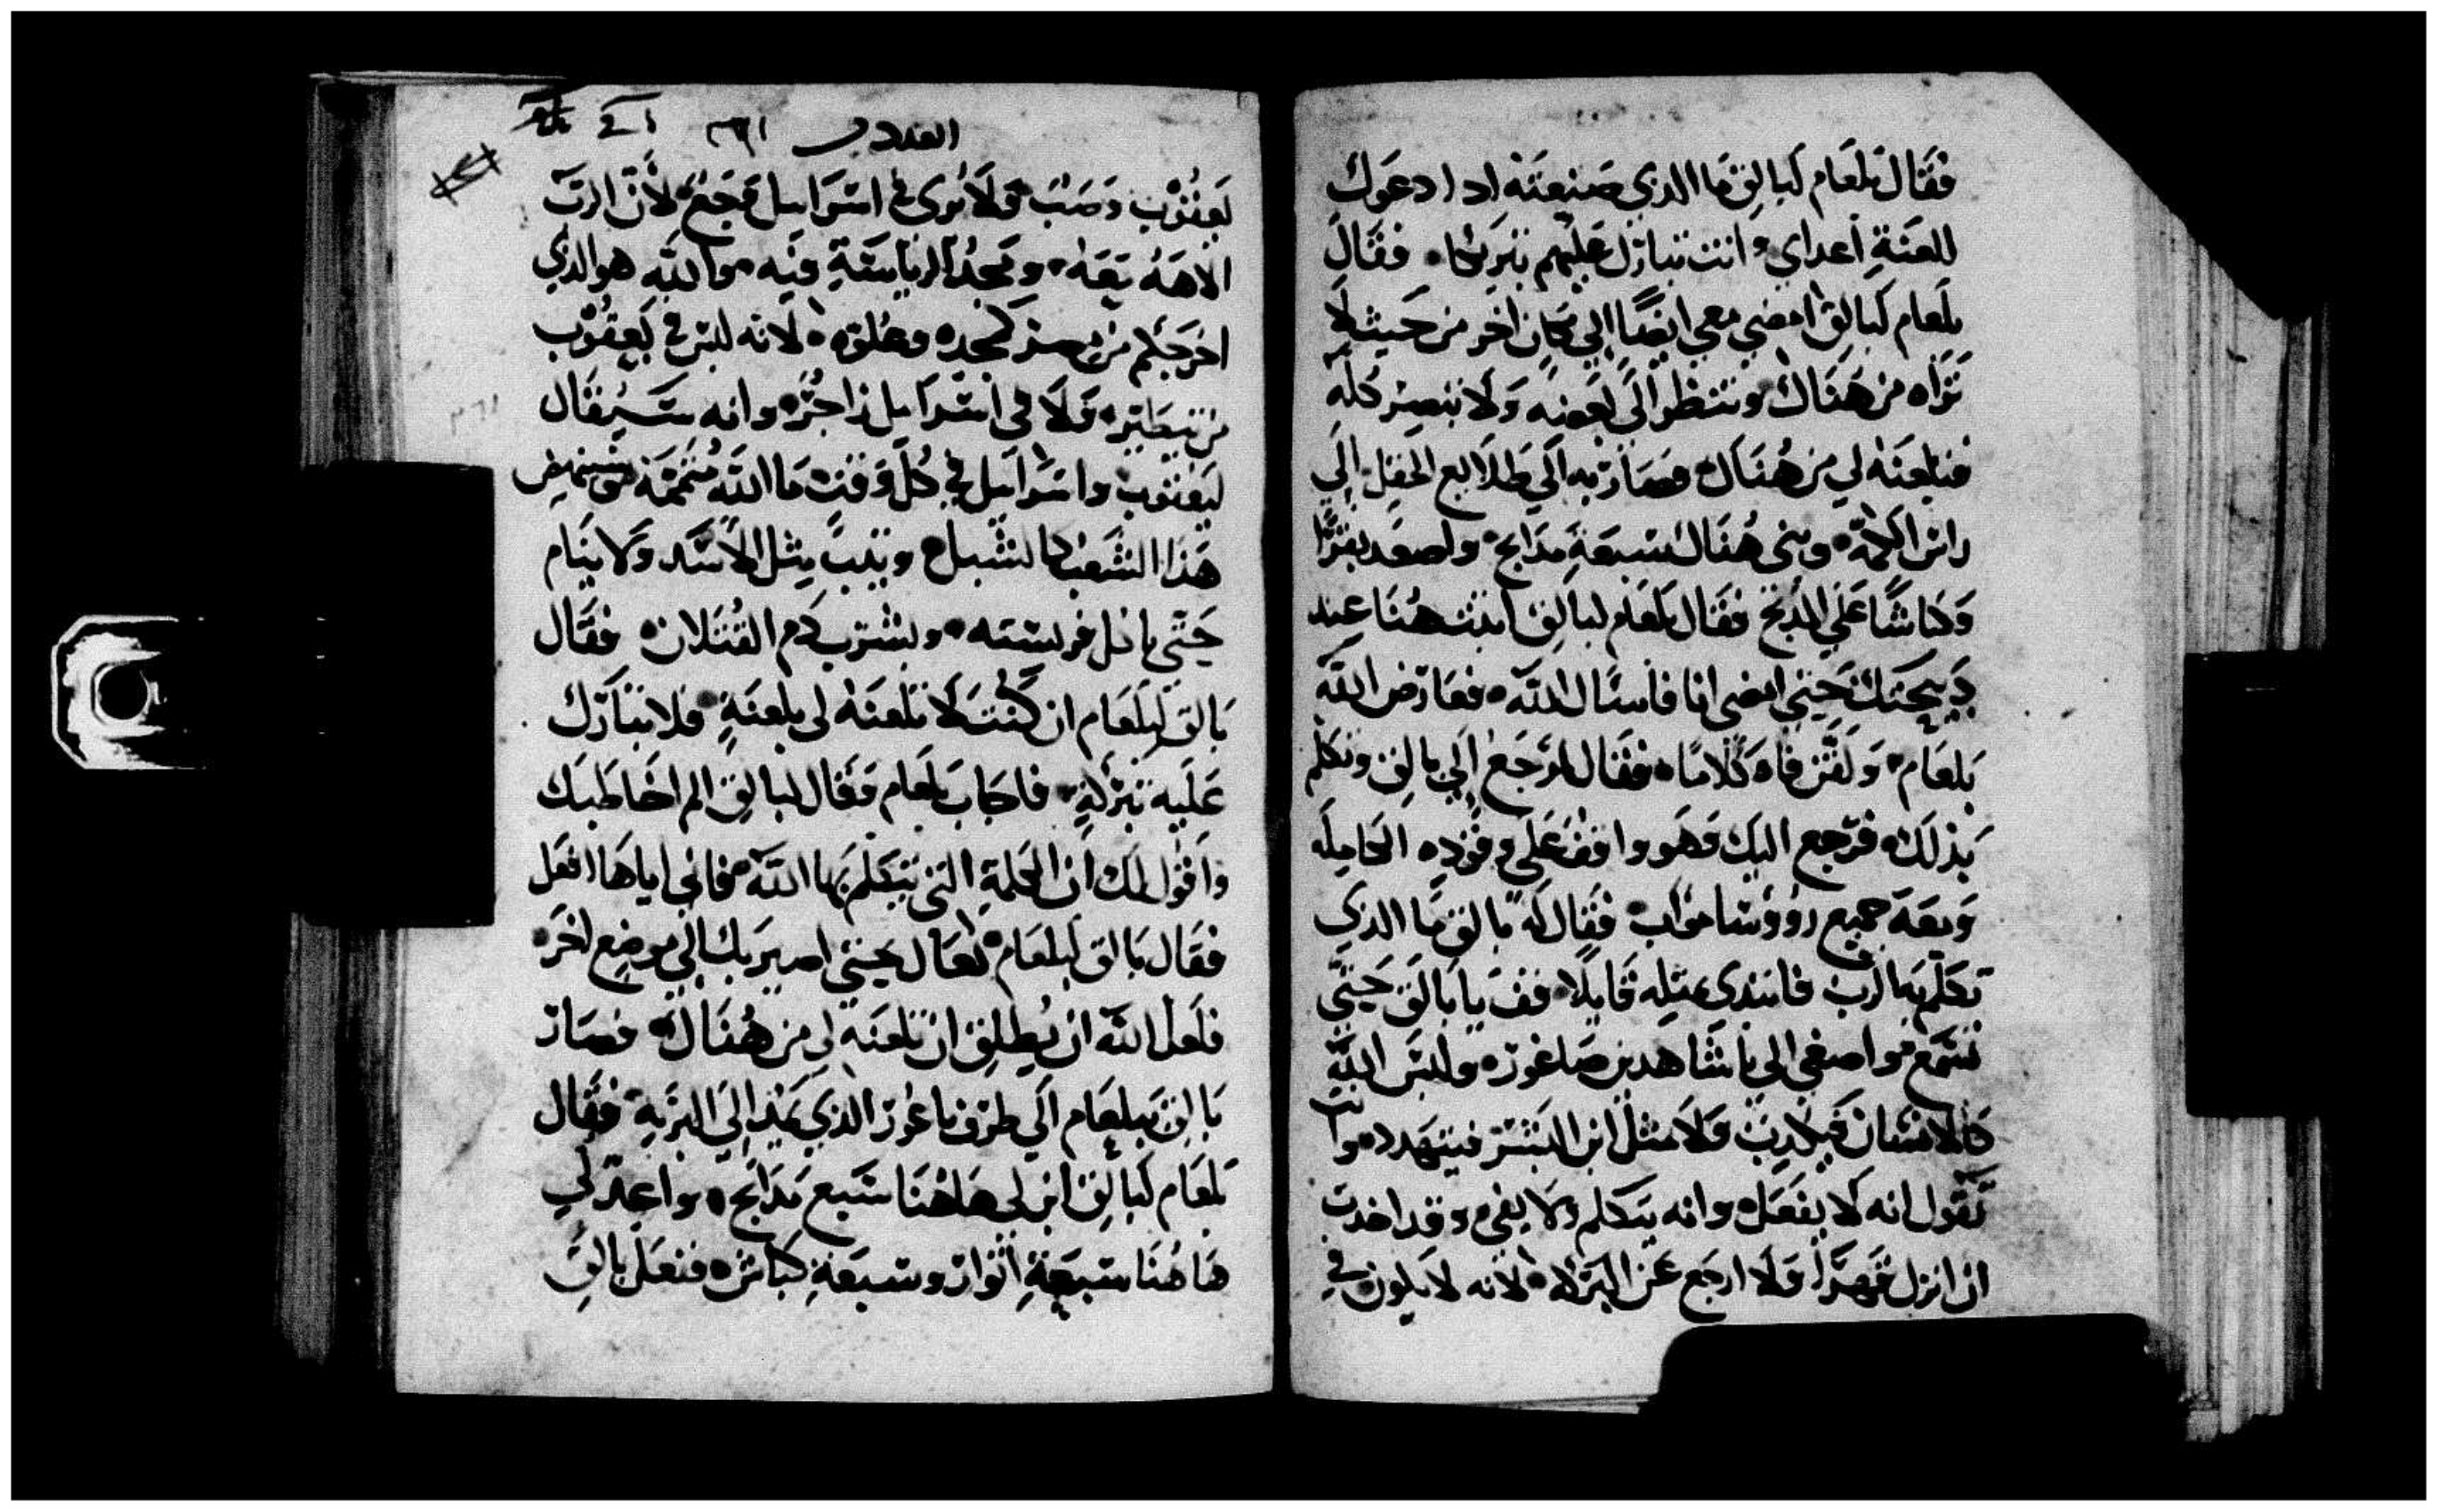 فقال بلعام لبالق ما الذي صنعته اذ ادعوك
للعنة اعداي وانت تبارك عليهم تبريكا فقال
بلعام لبالق امضي معي ايضا الي مكان اخر من حيث لا
تراه من هناك وتنظر الي بعضه ولا تبصر كله
فتلعنه لي من هناك وصار به الي طلايع الحقل الي
راس الاكمة وبني هناك سبعة مدابح واصعد بقرًا
وكباشًا علي المدبح فقال بلعام لبالق اثبت هنا عند
دبيحتك حتي امضي انا فاسال الله فعارض الله
بلعام ولقن فاه كلاما فقال له ارجع الي بالق وتكلم
بذلك فرجع اليك وهو واقف علي وقوده الكاملة
ومعه جميع رووسا مواب فقال له بالق ما الذي
تكلم به الرب فابتدي بمثله قايلا قف يا بالق حتي
تسمع واصغي الي يا شاهد بن صاغور وليس الله
كالانسان فيكدب ولا مثل ابن البشر فيتهدد وانت
تقول انه لا يفعل وانه يتكلم ولا يفي وقد اخدت
ان انزل ولا ارجع عن البركة لانه لا يكون في
العدد ٣٦١
يعقوب وصب ولا يرى في اسراييل وجع لان الرب
الاهه معه ومجد الرياسة فيه والله هو الذي
اخرجكم من مصر كمجده وعلوه لانه ليس في يعقوب
من يتطير ولا في اسراييل زاجر وانه سيقال
ليعقوب واسراييل في كل وقت ما الله متممه سينهض
هذا الشعب كالشبل ويثب مثل الاسد ولا ينام
حتي ياكل فريسته ويشرب دم القتلان فقال
بالق لبلعام ان كنت لا تلعنه لي بلعنة فلا تبارك
عليه تبركة فاجاب بلعام وقال لبالق الم اخاطبك
واقول لك ان الكلمة التي يتكلم بها الله فاني اياها افعل
فقال بالق لبلعام تعال حتي اصير بك الي موضع اخر
فلعل الله ان يطلق ان تلعنه لي من هناك فصار
بالق ببلعام الي طرف باغور الذي يمد الي البرية فقال
بلعام لبالق ابن لي هاهنا سبع مدابح واعد لي
هاهنا سبعة اثوار وسبعة كباش ففعل بالق